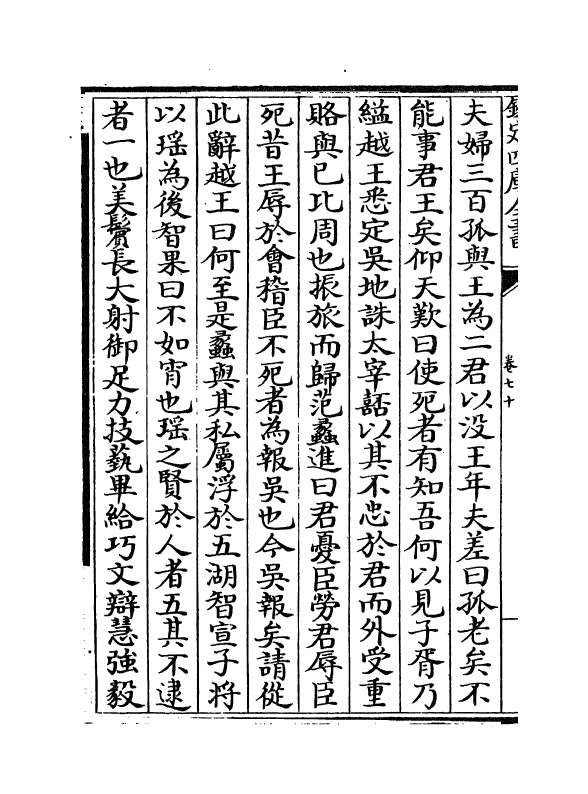 欽定四庫全書
卷七十
夫婦三百孤與王為二君以没王年夫差曰孤老矣不
能事君王矣仰天歎曰使死者有知吾何以見子胥乃
縊越王悉定吳地誅太宰嚭以其不忠於君而外受重
賂與已比周也振旅而歸范蠡進曰君憂臣勞君辱臣
死昔王辱於會稽臣不死者為報吳也今吳報矣請從
此辭越王曰何至是蠡與其私屬浮於五湖智宣子将
以瑶為後智果曰不如宵也瑶之賢於人者五其不逮
者一也美鬢長大射御足力技藝畢給巧文辯慧強毅